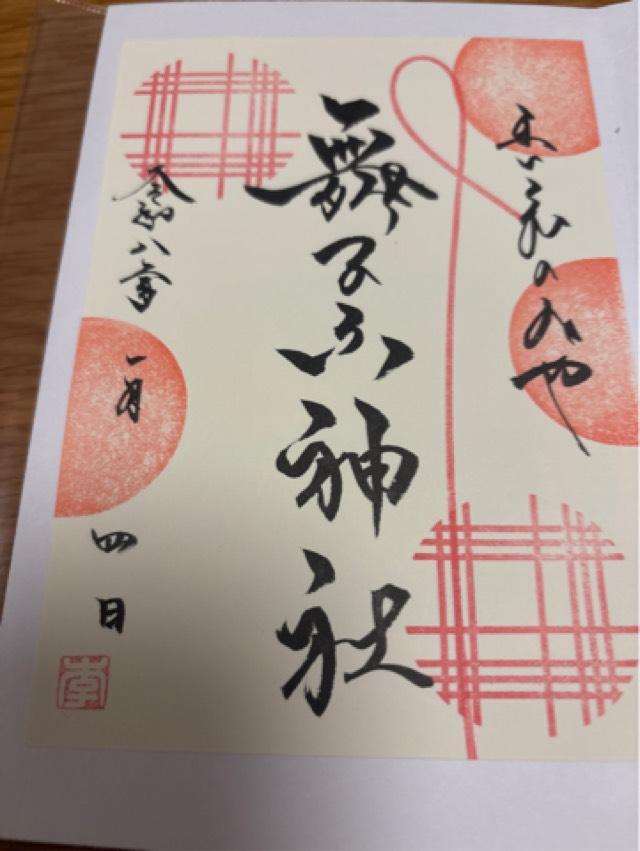 のみや
舞子六神社
令和八年
一月
四日